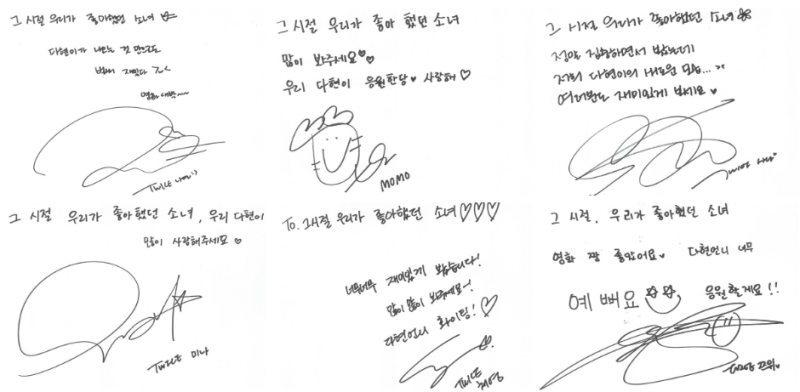 그 시절 우리가 좋아했던 소녀
다현이가 나오는 것 만으로도
벌써 재밌다
TWICE 나연
그 시절 우리가 좋아 했던 소녀
많이 봐주세요♡♡
우리 다현이 응원한당♥ 사랑해♡
MOMO
그 시절 우리가 좋아했던 소녀
정말 집중하면서 봤는데
저희 다현이의 새로운 모습...
여러분도 재미있게 보세요♥
TWICE 사나
그 시절 우리가 좋아했던 소녀, 우리 다현이
많이 사랑해주세요♡
TWICE 미나
To. 그시절 우리가 좋아했던 소녀♡♡♡
너무너무 재미있게 봤습니다!
많이많이 봐주세요~!
다현언니 화이팅!♡
TWICE 채영
그 시절, 우리가 좋아했던 소녀
영화 짱 좋았어요♥ 다현언니 너무
예뻐요 응원할게요!!
TWICE 쯔위♥